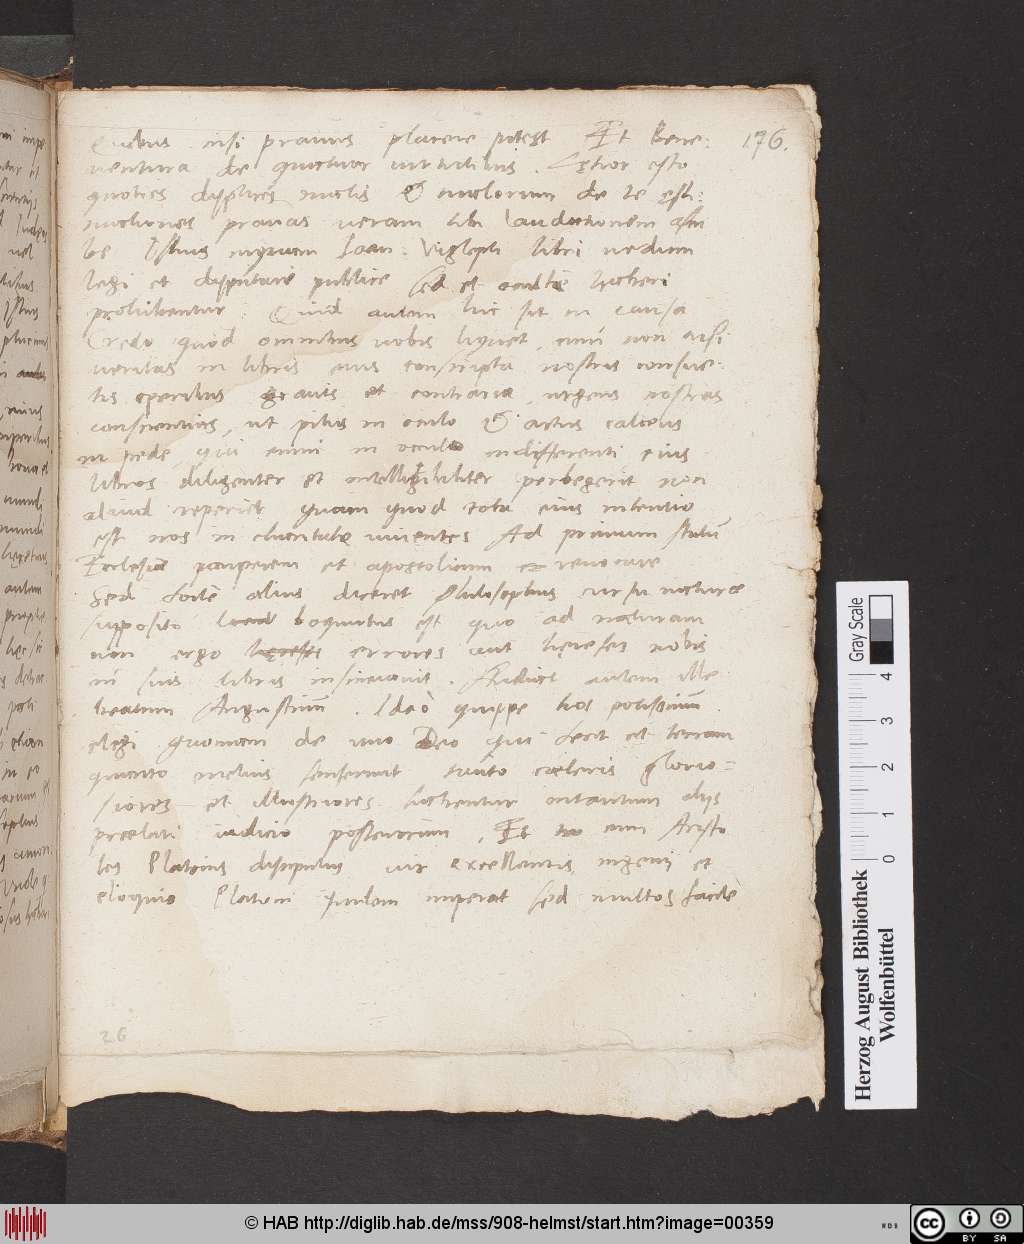 Quibus nisi pravus placere potest Et Bene: 176.
ventura de quatuor virtutibus. Lętior esto
quoties displices malis & malorum de te ęsti:
mationes pravas veram tibi laudationem
be Istius inquam Ioan: Viglephi libri nedum
legi et disputari publice sed et occulte haberi
prohibentur. Quid autem hic sit in causa
Credo quod omnibus vobis liquet, cum non nisi
veritas in libris eius conscripta nostris consue:
tis operibus gravis et contraria, urgens nostras
conscientias, ut pilus in oculo & artus calceus
in pede, qui enim in oculo indifferenti eius
libros diligenter et intelligibiliter perlegerit non
aliud reperiet quam quod tota eius intentio
est nos in charitate viventes Ad primum statum
Ecclesiæ pauperem et apostolicum revocare
Sed forte alius diceret Philosophus cursu naturæ
supposito loquutus est quo ad naturam
non ergo errores aut hęreses nobis
in suis libris insinuavit. Audiat autem ille
beatum Augustinum. Ideo quippe hos potissimum
elegi quoniam de uno Deo qui fecit et terram
quanto melius senserunt tanto cæteris glorio=
siores et illustriores habentur intantum alijs
prælati iudicio posterorum, Et cum Aristo
les Platonis discipulus vir excellentis ingenij et
eloquio Platoni quidem imperat sed multos facile
26
Herzog August Bibliothek
Wolfenbüttel
Gray Scale
0 1 2 3 4
© HAB http://diglib.hab.de/mss/908-helmst/start.htm?image=00359
WDB
cc BY SA